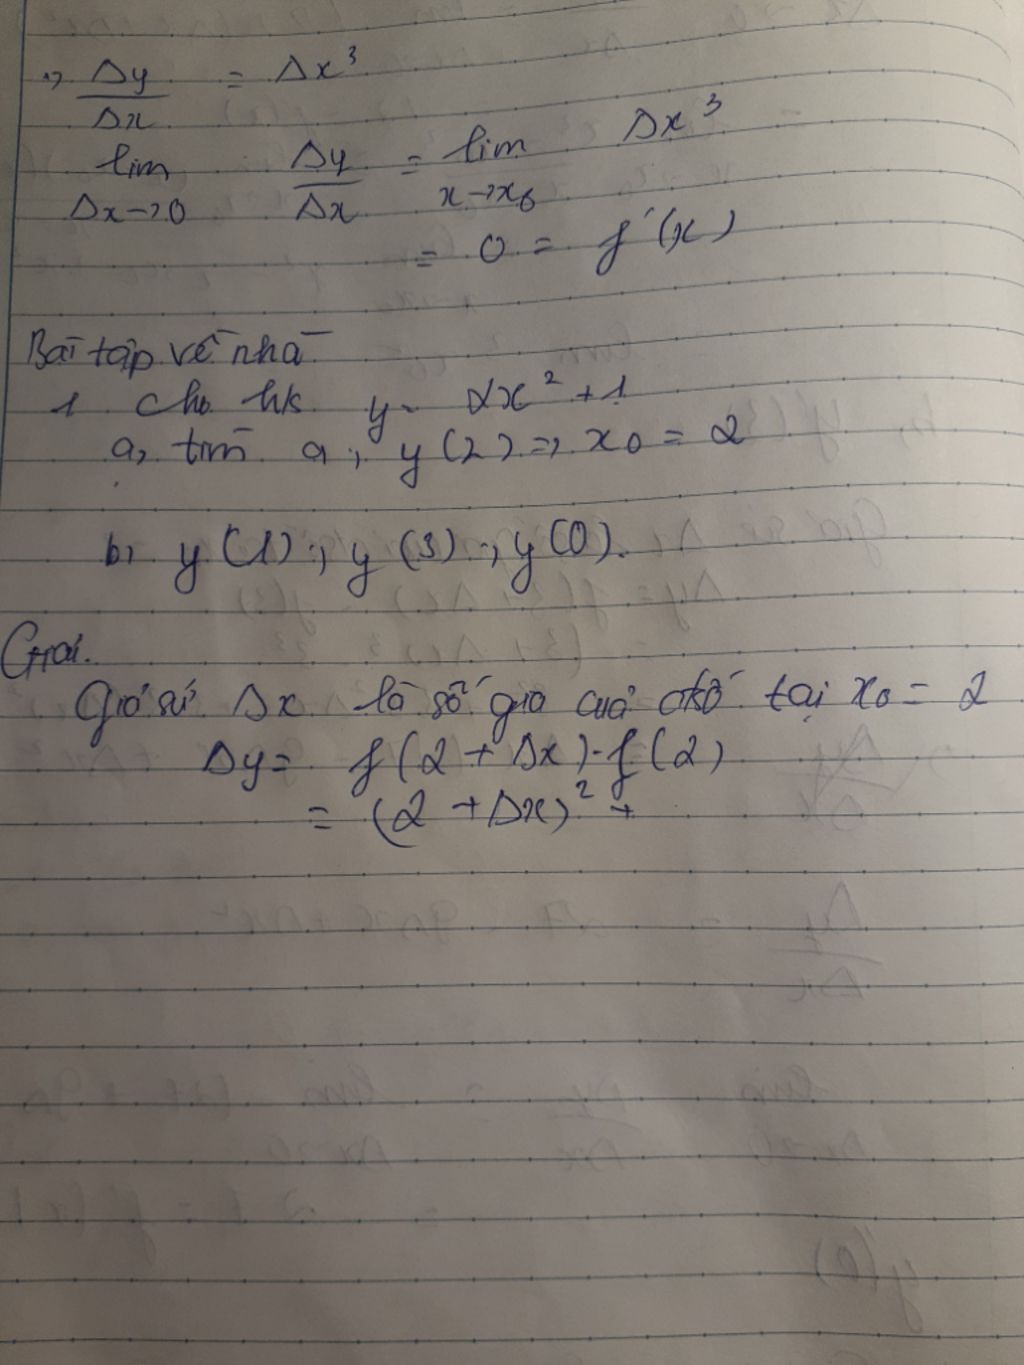 => Δy/Δx = Δx³
lim Δx->0 Δy/Δx = lim x->x₀ Δx³
= 0 = f'(x)
Bài tập về nhà
1 Cho h/s y = 2x² + 1
a, tìm a, y(2) => x₀ = 2
b, y(1); y(3); y(0).
Giải.
Giả sử Δx là số gia của đối số tại x₀ = 2
Δy = f(2 + Δx) - f(2)
= (2 + Δx)² +